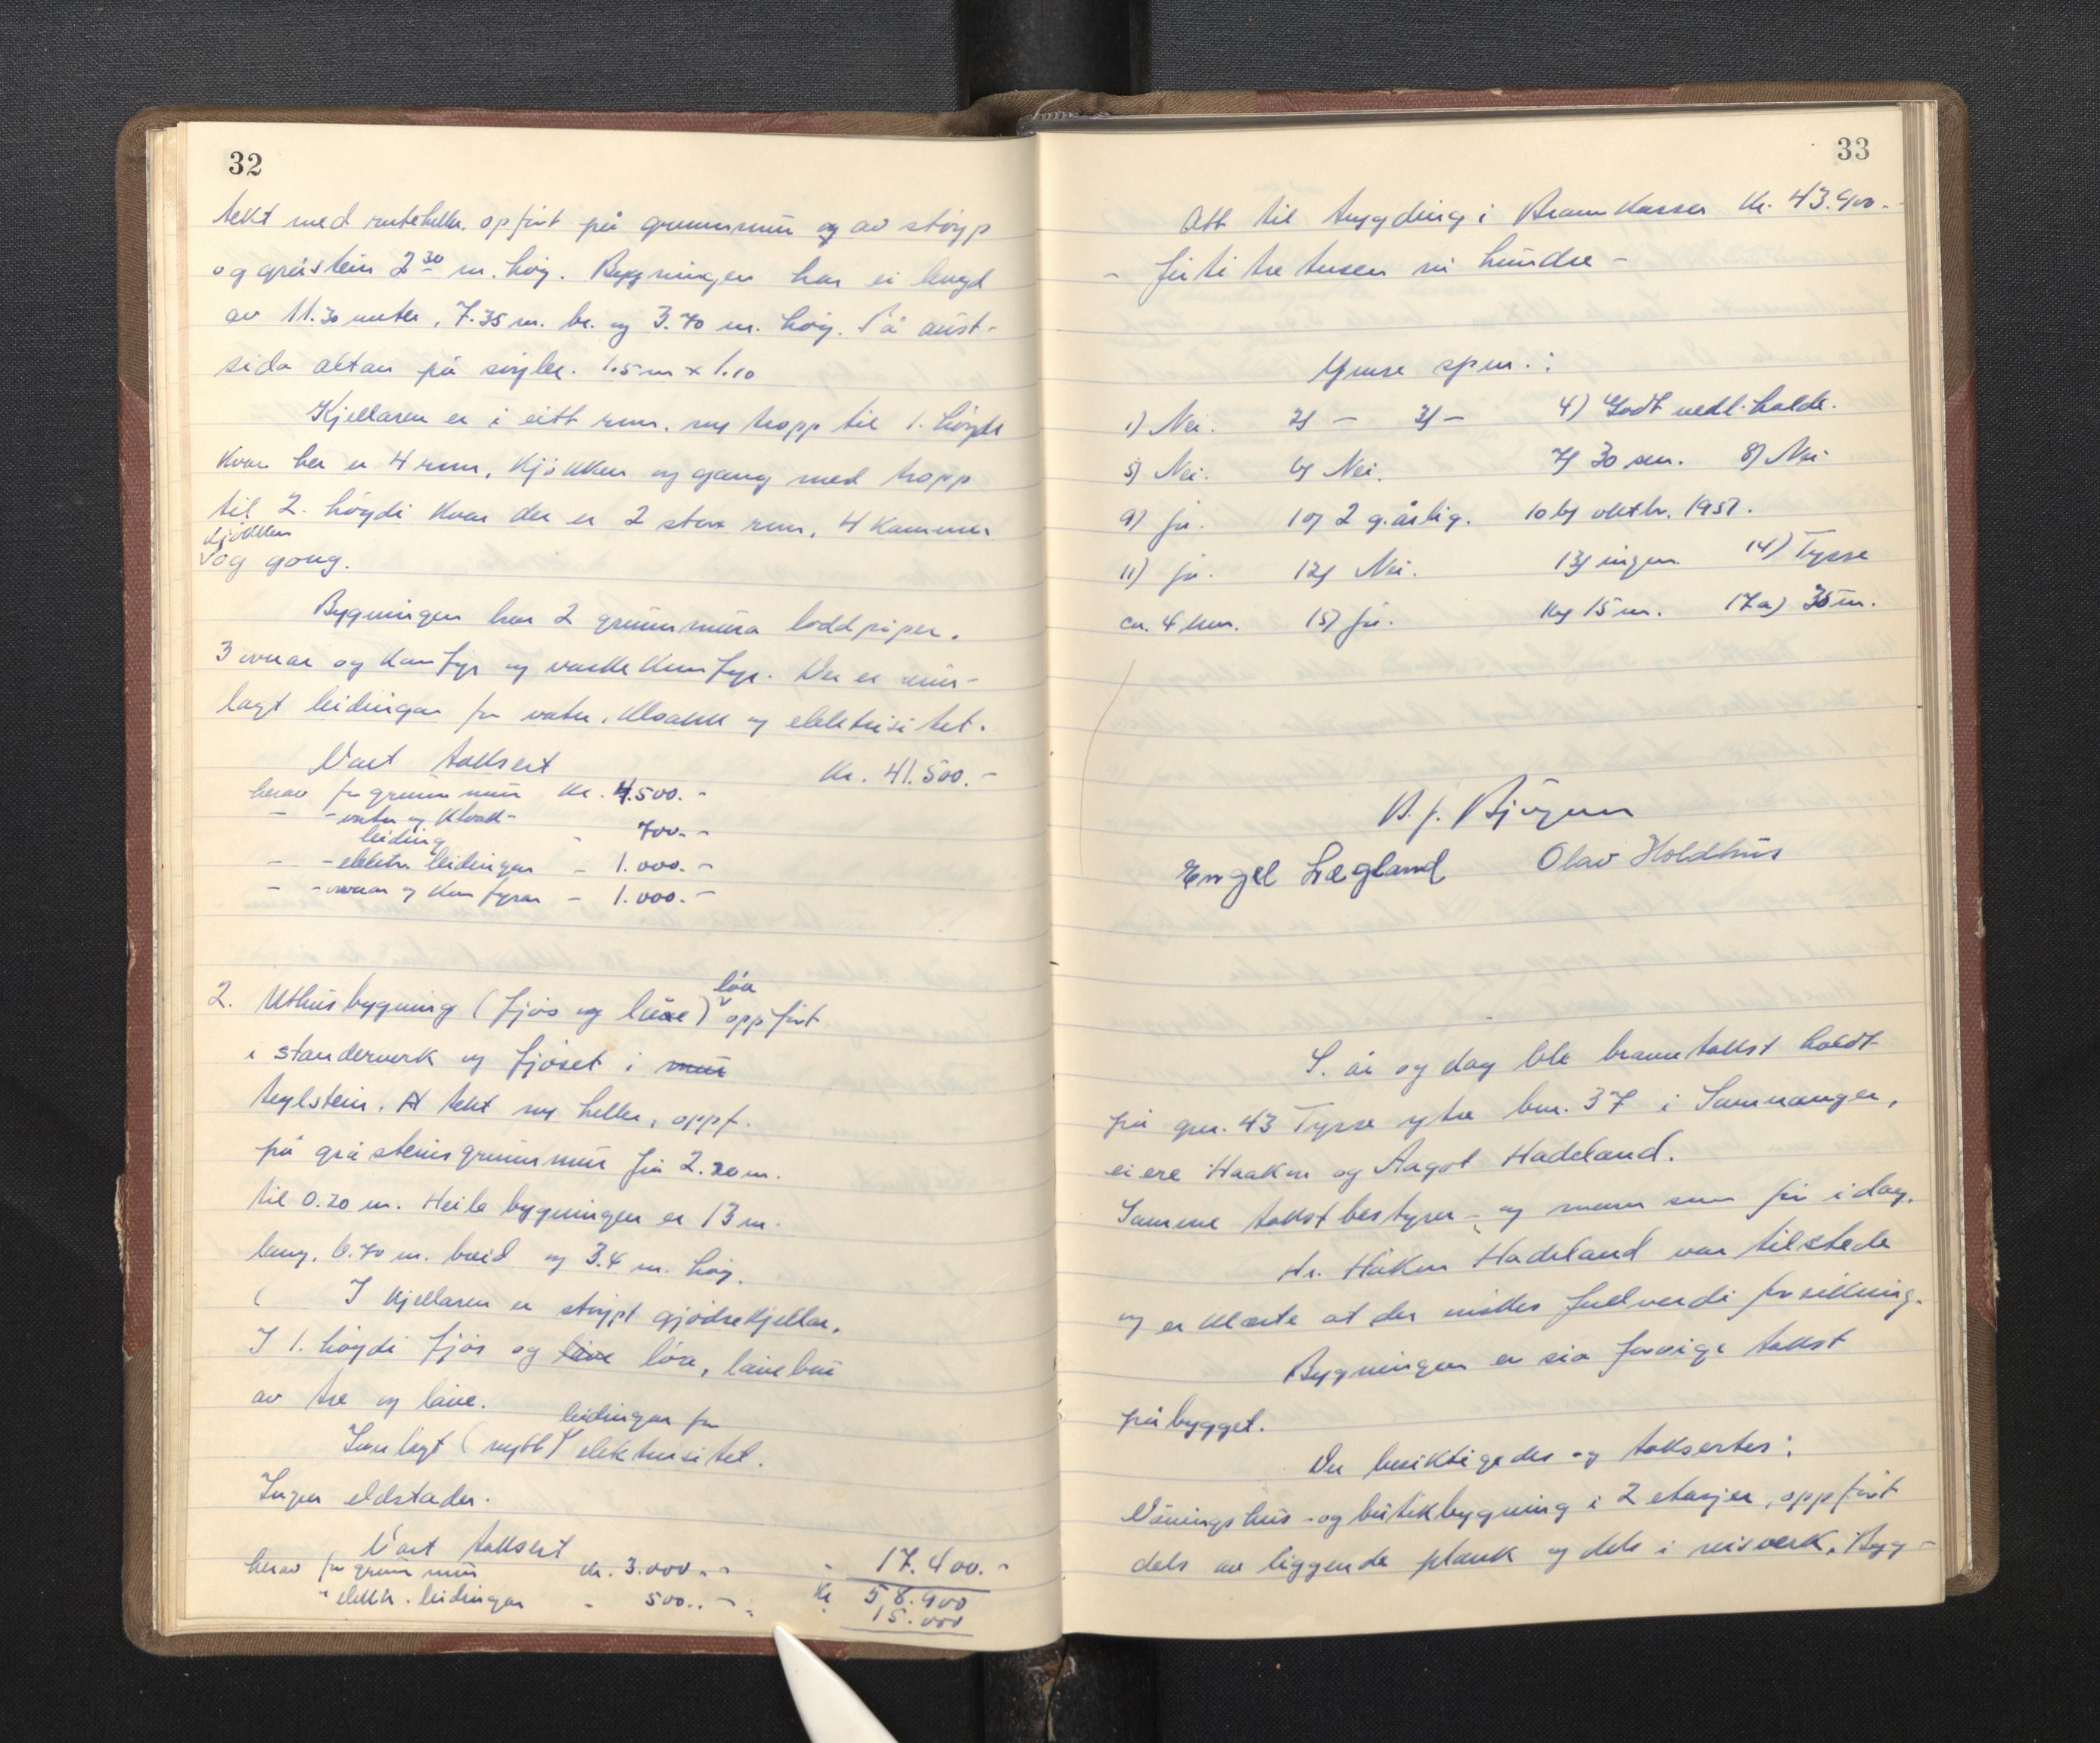 32
tekt med rutehelle, opført på grunnmur og av støyp
og gråstein 2.30 m. høg. Bygningen har ei lengd
av 11.30 meter, 7.35 m. br. og 3.70 m. høg. På aust-
sida altan på søyler. 1.5 m x 1.10
Kjellaren er i eitt rum, ny tropp til 1. høgde
kvar her er 4 rum, kjøkken og gang med tropp
til 2. høgdi kvar der er 2 store rum, 4 kammer
kjøkken
og gong.
Bygningen har 2 grunnmura loddpiper.
3 ovnar og komfyr og vaskekomfyr. Der er inn-
lagt leidingar for vatn, kloakk og elektrisitet.
Vart taksert kr. 41.500.-
herav for grunnmur kr. 4.500.-
- - vatn og kloakk-
leiding - 700.-
- - elektr. leidingar - 1.000.-
- - ovnar og komfyrar - 1.000.-
2. Uthusbygning (fjøs og låve) løa oppført
i standerverk og fjøset i mur
teglstein. tekt ny heller, oppf.
på gråsteinsgrunnmur frå 2.20 m.
til 0.20 m. Heile bygningen er 13 m.
lang, 6.70 m. breid og 3.4 m. høg.
I kjellaren er støypt gjødselkjellar.
I 1. høgdi fjøs og låve løa, låvebru
av tre og låve.
leidingar for
Innlagt (nytt) elektrisitet.
Ingen eldstader.
Vart taksert - 17.400.-
herav for grunnmur kr. 3.000.-
- elektr. leidingar - 500.-
kr 58.900
15.000
33
Att til trygding i Brannkassa kr. 43.900.-
- førti tre tusen ni hundre -
Ymse spm.:
1) Nei. 2) - 3) - 4) Godt vedl.halde.
5) Nei. 6) Nei. 7) 30 sm. 8) Nei
9) Ja. 10) 2 g. årlig. 10b) oktbr. 1951.
11) Ja. 12) Nei. 13) ingen. 14) Tysse
ca. 4 km. 15) Ja. 16) 15 m. 17a) 35 m.
Engel Lægland Olav Holdhus
S. år og dag ble branntakst holdt
på gnr. 43 Tysse ytre bnr. 37 i Samnanger,
eiere Haakon og Aagot Hadeland.
Samme takstbestyrer - og menn som før i dag.
Hr. Håkon Hadeland var tilstede
og erklærte at der ønskes fullverdi forsikring.
Bygningen er sia forrige takst
påbygget.
Der besiktigedes og taksertes:
Våningshus - og butikkbygning i 2 etasjer, oppført
dels av liggende plank og dels i reisverk. Byg-